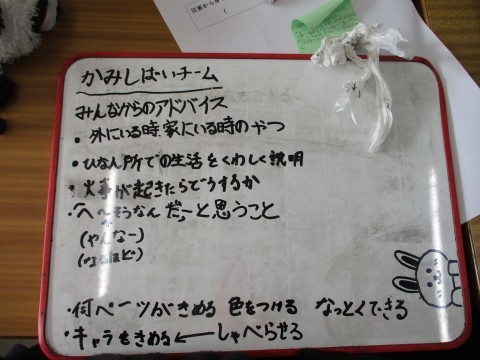 かみしばいチーム
みんなからのアドバイス
・外にいる時、家にいる時のやつ
・ひなん所での生活をくわしく説明
・火事が起きたらどうするか
・へぇーそうなんだぁーと思うこと
(やんなー)
(なるほど)
・何ページかきめる 色をつける なっとくできる
・キャラをきめる←しゃべらせる